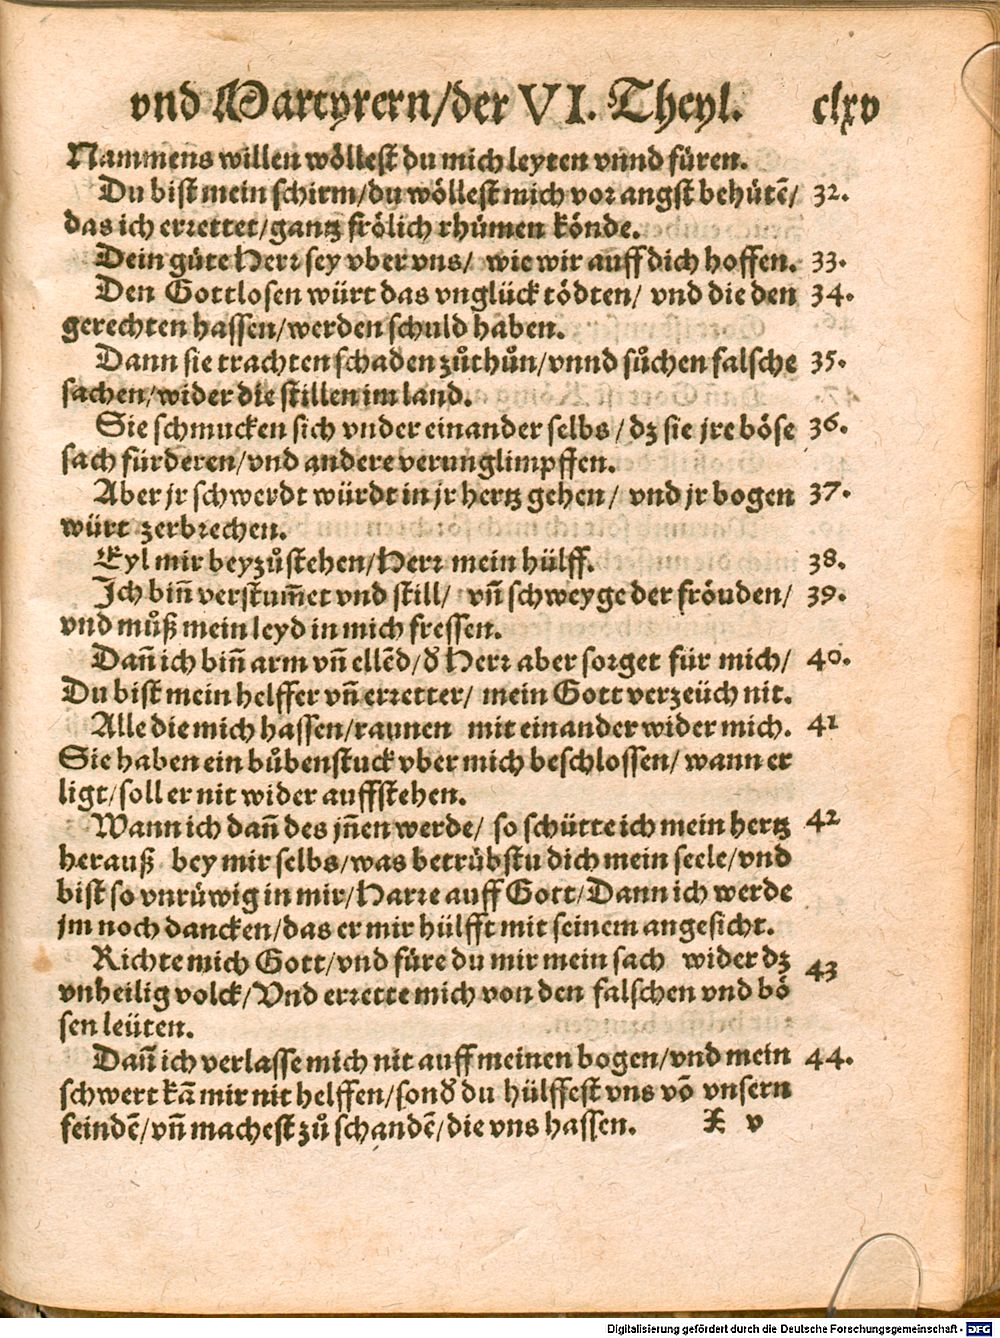 vnd Martyrern/der VI. Theyl. clxv
Nammens willen wöllest du mich leyten vnnd füren.
Du bist mein schirm/du wöllest mich vor angst behütē/ 32.
das ich errettet/gantz frölich rhümen könde.
Dein güte Herr sey vber vns/ wie wir auff dich hoffen. 33.
Den Gottlosen würt das vnglück tödten/ vnd die den 34.
gerechten hassen/werden schuld haben.
Dann sie trachten schaden zůthůn/vnnd sůchen falsche 35.
sachen/wider die stillen im land.
Sie schmucken sich vnder einander selbs/dz sie jre böse 36.
sach fürderen/vnd andere verunglimpffen.
Aber jr schwerdt würdt in jr hertz gehen/ vnd jr bogen 37.
würt zerbrechen.
Eyl mir beyzůstehen/Herr mein hülff. 38.
Ich bin̄ verstum̄et vnd still/ vn̄ schweyge der fröuden/ 39.
vnd můß mein leyd in mich fressen.
Dan̄ ich bin̄ arm vn̄ ellēd/ď Herr aber sorget für mich/ 40.
Du bist mein helffer vn̄ erretter/ mein Gott verzeüch nit.
Alle die mich hassen/raunen mit einander wider mich. 41
Sie haben ein bůbenstuck vber mich beschlossen/wann er
ligt/soll er nit wider auffstehen.
Wann ich dan̄ des jn̄en werde/ so schütte ich mein hertz 42
herauß bey mir selbs/was betrübstu dich mein seele/vnd
bist so vnrüwig in mir/Harre auff Gott/Dann ich werde
jm noch dancken/das er mir hülfft mit seinem angesicht.
Richte mich Gott/vnd füre du mir mein sach wider dz 43
vnheilig volck/Vnd errette mich von den falschen vnd bö
sen leüten.
Dan̄ ich verlasse mich nit auff meinen bogen/vnd mein 44.
schwert kā mir nit helffen/sonď du hülffest vns vō vnsern
feindē/vn̄ machest zů schandē/die vns hassen. X v
Digitalisierung gefördert durch die Deutsche Forschungsgemeinschaft - DFG